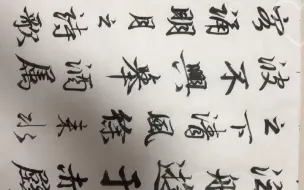 泛舟遊于赤壁
之下清風徐来水
波不興舉酒属
客诵明月之诗歌